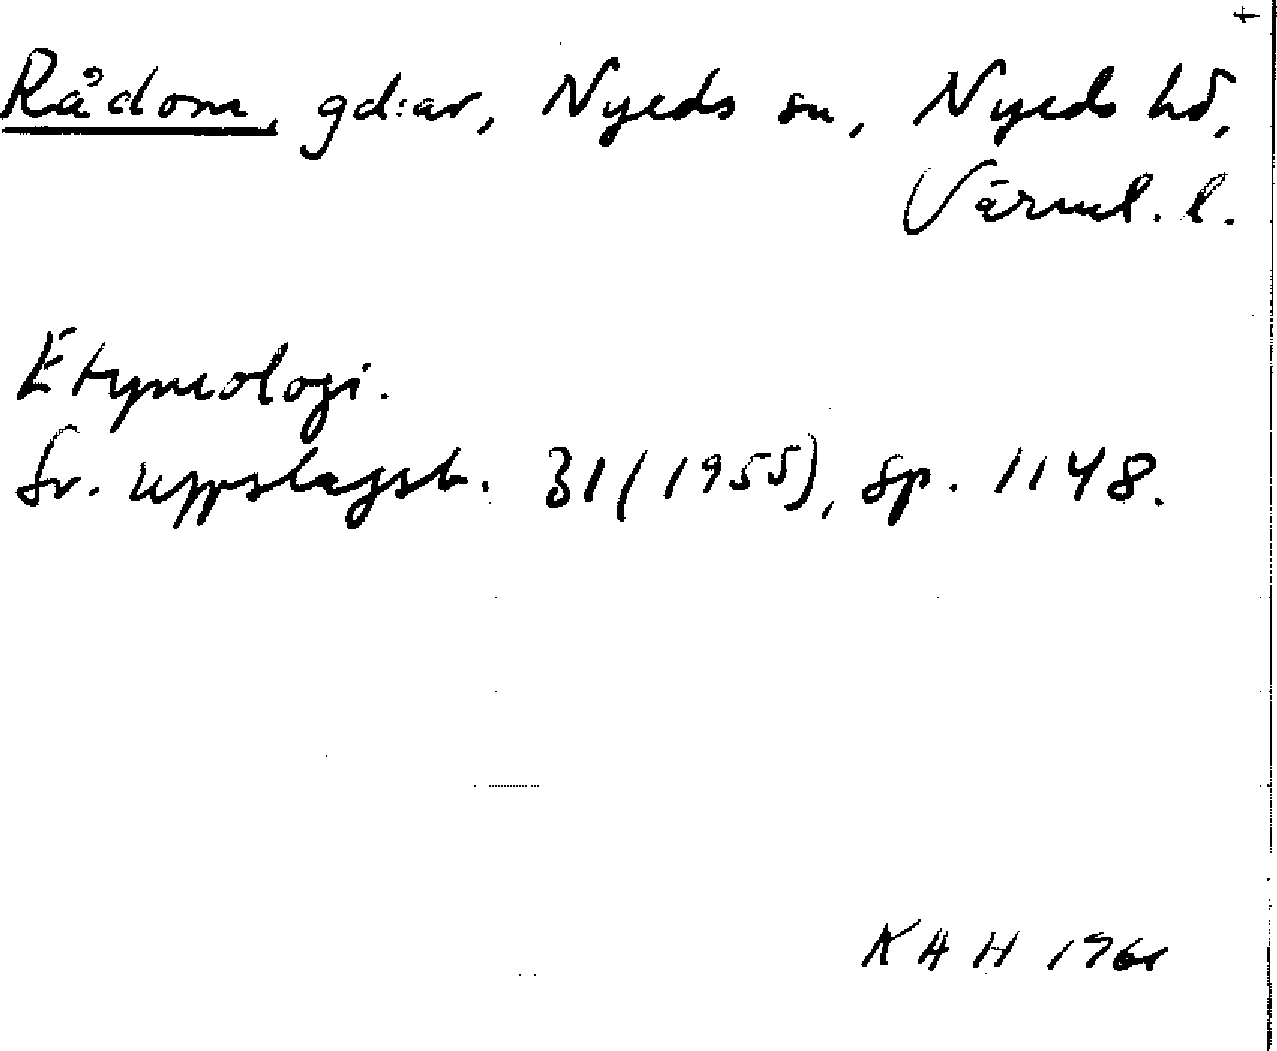 Rådom, gd:ar, Nyeds sn, Nyeds hd,
Värml. l.
Etymologi.
Sv. uppslagsb. 31 (1955), sp. 1148.
KAH 1961